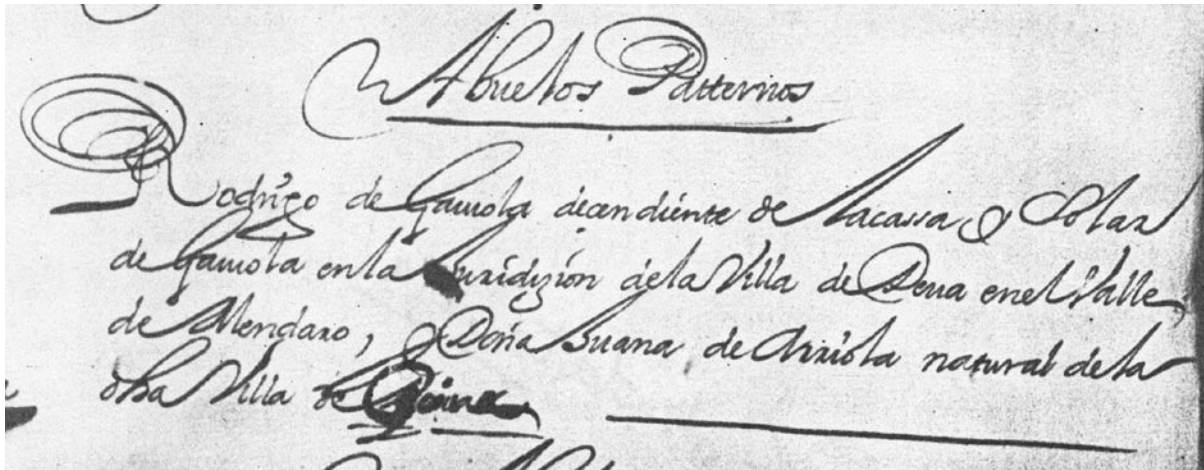 Abuelos Patternos
Rodrigo de Gauiola decendiente de la cassa y Solar
de Gauiola en la Juridizion de la Villa de Deua en el Valle
de Mendaro, y Doña Juana de Arriola natural de la
dha Villa de